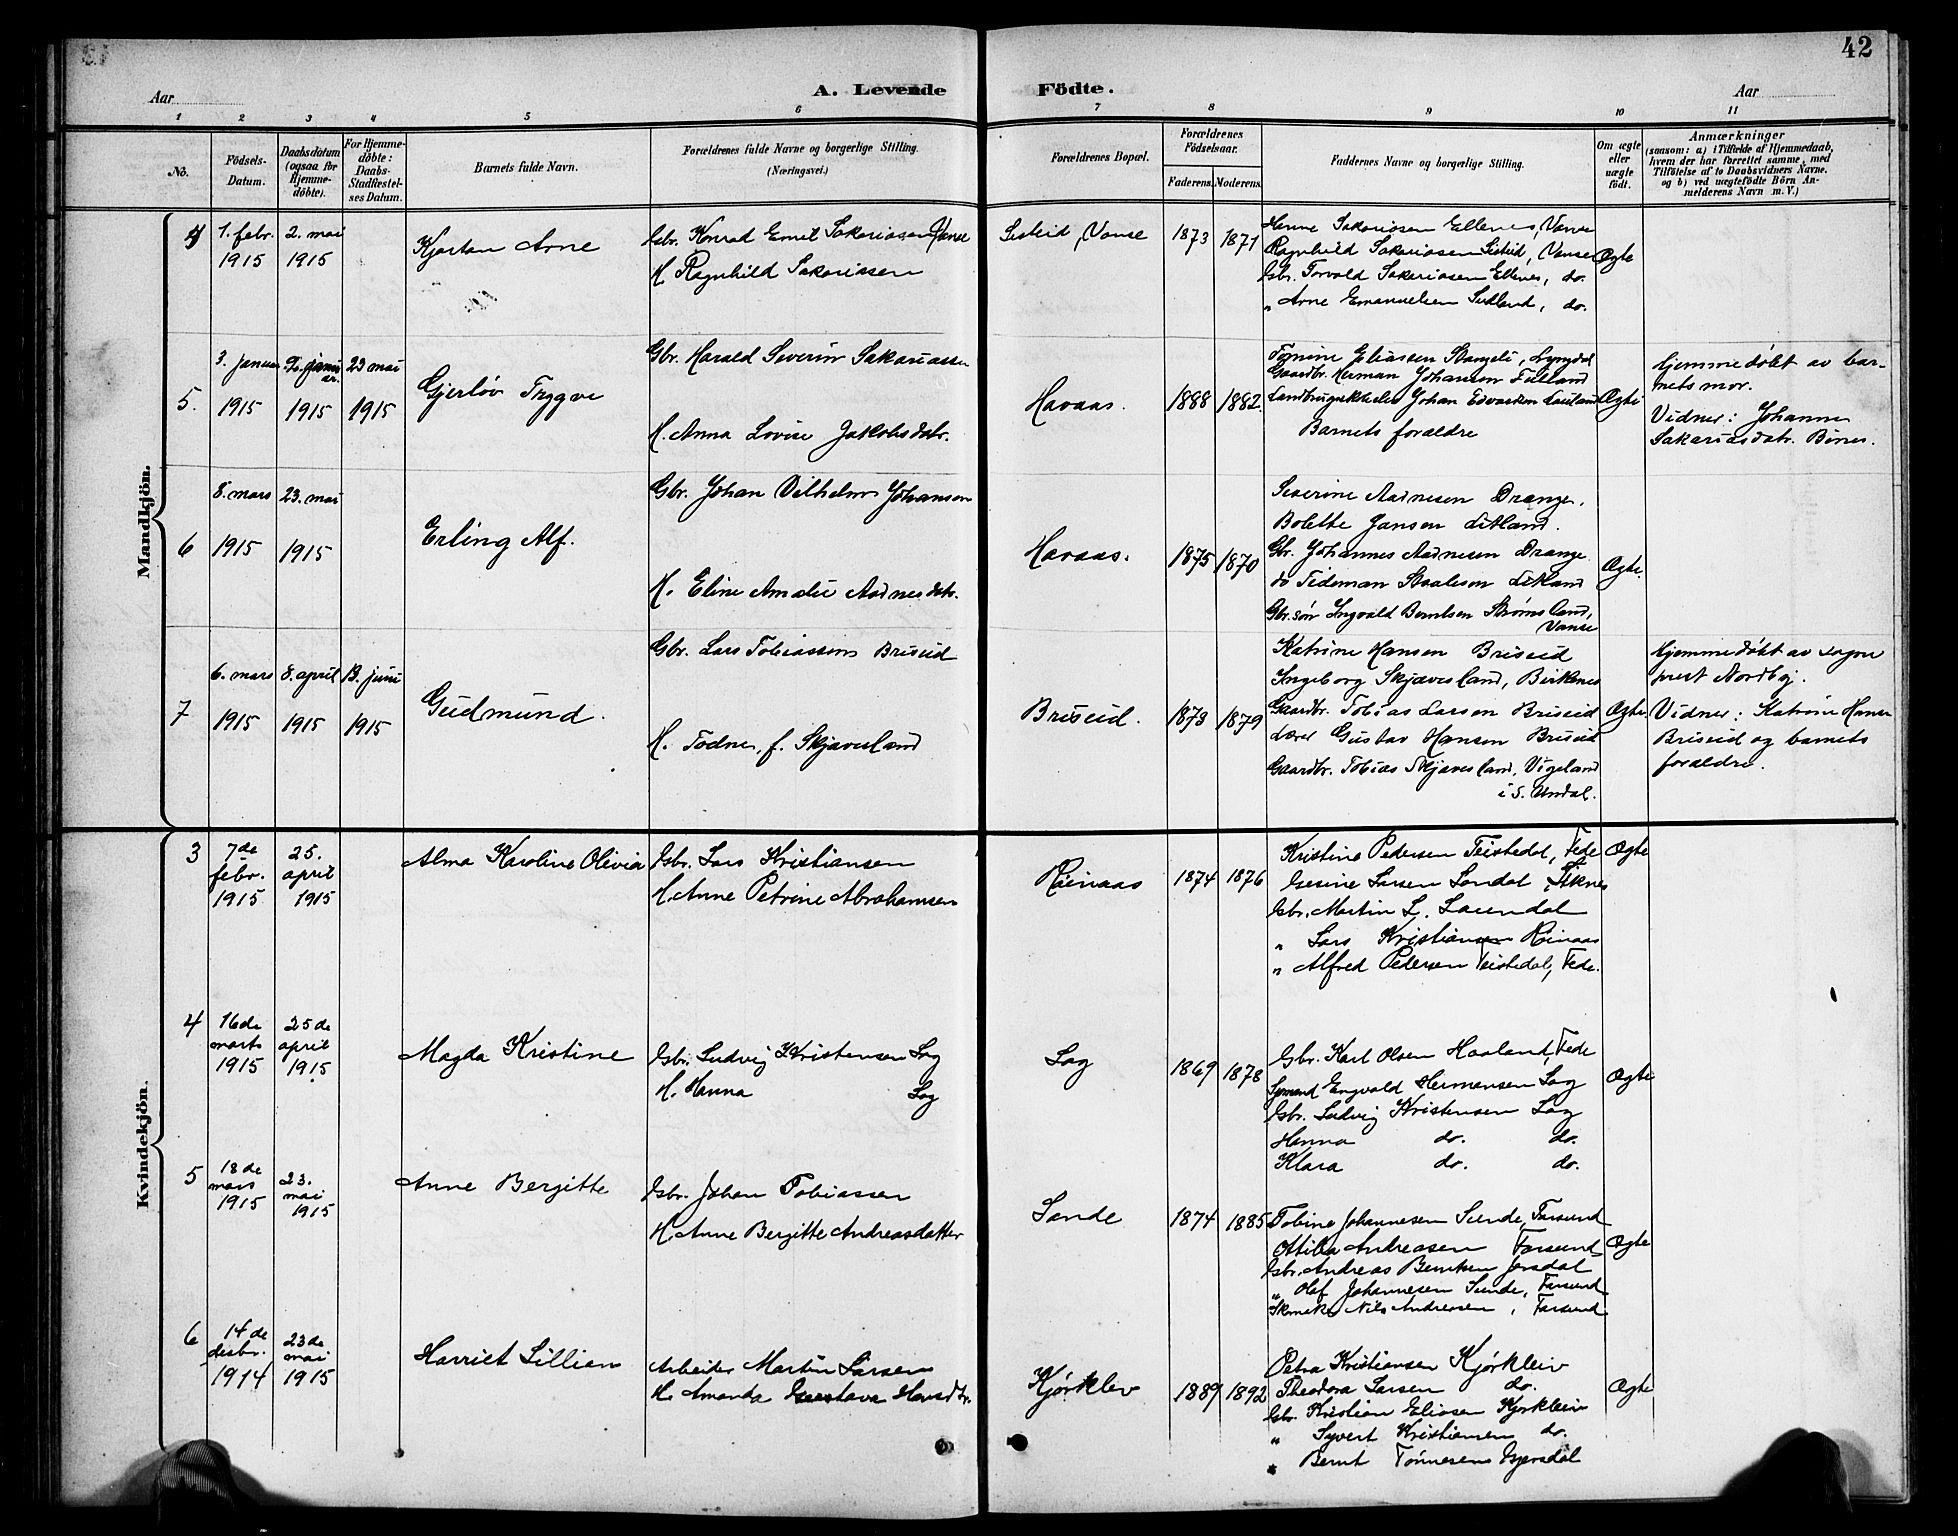 42
Aar
A. Levende Födte.
Aar
1 2 3 4 5 6 7 8 9 10 11
No.
Födsels-
Datum.
Daabsdatum
(ogsaa for
Hjemme-
döbte).
For Hjemme-
döbte:
Daabs-
Stadfæstel-
ses Datum.
Barnets fulde Navn.
Forældrenes fulde Navne og borgerlige Stilling.
(Næringsvei.)
Forældrenes Bopæl.
Forældrenes
Födselsaar.
Faderens. Moderens.
Faddernes Navne og borgerlige Stilling.
Om ægte
eller
uægte
födt.
Anmærkninger
(saasom: a) i Tilfælde af Hjemmedaab,
hvem der har forrettet samme, med
Tilföielse af to Daabsvidners Navne.
og b) ved uægtefödte Börn An-
melderens Navn m. V.)
Mandkjön.
4
1. febr.
1915
2. mai
1915
Kjartan Arne
Gbr. Konrad Emil Sakariassen Vanse
H. Ragnhild Sakariassen
Vanse
1873 1871
Hanne Sakariasen Ellenes, Vanse
Ragnhild Sakariasen Vanse
Gbr. Torvald Sakariasen Ellenes, do.
" Arne Emanuelsen do.
Ægte
5.
3. januar
1915
1915
23 mai
1915
Gjerløv Tryggve
Gbr. Harald Severin Sakariassen
H. Anna Lovise Jakobsdatr.
Havaas.
1888 1882
Eliassen Stangeli, Lyngdal
Gaardbr. Herman Johansen
Johan Edvardsen
Barnets forældre
Ægte
hjemmedøbt av bar-
nets mor.
Vidner: Johanne
Sakariasdatr.
6
8. mars
1915
23. mai
1915
Erling Alf.
Gbr. Johan Vilhelm Johansen
H. Eline Amalie Aadnesdatr.
Havaas.
1875 1870
Severine Aadnesen Drange.
Bolette Jansen Litland.
Gbr. Johannes Aadnesen Drange
do Tideman Staalesen Litland
Gbr. søn Ingvald Berntsen Strømsland,
Vanse
Ægte.
7
6. mars
1915
8. april
1915
13. juni
1915
Gudmund.
Gbr. Lars Tobiassen Briseid
H. Todne, f. Skjævesland
Briseid.
1878 1879
Katrine Hansen Briseid
Ingeborg Skjævesland, Birkenes
Gaardbr. Tobias Larsen Briseid
Lærer Gustav Hansen Briseid
Gaardbr. Tobias Skjævesland, Vigeland
i S. Undal.
Ægte
hjemmedøbt av sogne
prest Nordbøj.
Vidner: Katrine Hansen
Briseid og barnets
forældre.
Kvindekjön.
3
7de
febr.
1915
25.
april
1915
Alma Karoline Olivia
Gbr. Lars Kristiansen
H. Anne Petrine Abrahamsen
Røinaas
1874 1876
Kristine Pedersen Teistedal, Fede
Gesine Larsen
Gbr. Martin L. Laundal
" Lars Kristiansen Røinaas
" Alfred Pedersen Teistedal, Fede.
Ægte
4
16de
marts
1915
25de
april
1915
Magda Kristine
Gbr. Ludvig Kristensen Log
H. Hanna Log
Log
1869 1878
Gbr. Karl Olsen Haaland, Fede
Sømand Engvald Hermansen Log
Gbr. Ludvig Kristensen Log
Hanna do. do.
Klara do. do.
Ægte
5
18de
mars
1915
23.
mai
1915
Anne Bergitte
Gbr. Johan Tobiassen
H. Anne Bergitte Andreasdatter
Sande
1874 1885
Tobine Johannesen Sunde, Farsund
Ottilia Andreasen Farsund
Gbr. Andreas Berntsen
" Olaf Johannesen Sunde, Farsund
Skomaker Nils Andreasen, Farsund
Ægte
6
14de
desbr.
1914
23de
mai
1915
Harriet Lillian
Arbeider Martin Larsen
H. Amanda Gustava Hansdtr.
Kjørklev
1889 1892
Petra Kristiansen Kjørkleiv
Theodora Larsen do.
Gbr. Kristian Eliasen Kjørkleiv
" Syvert Kristiansen do.
" Bernt Tønnesen Gjersdal
Ægte